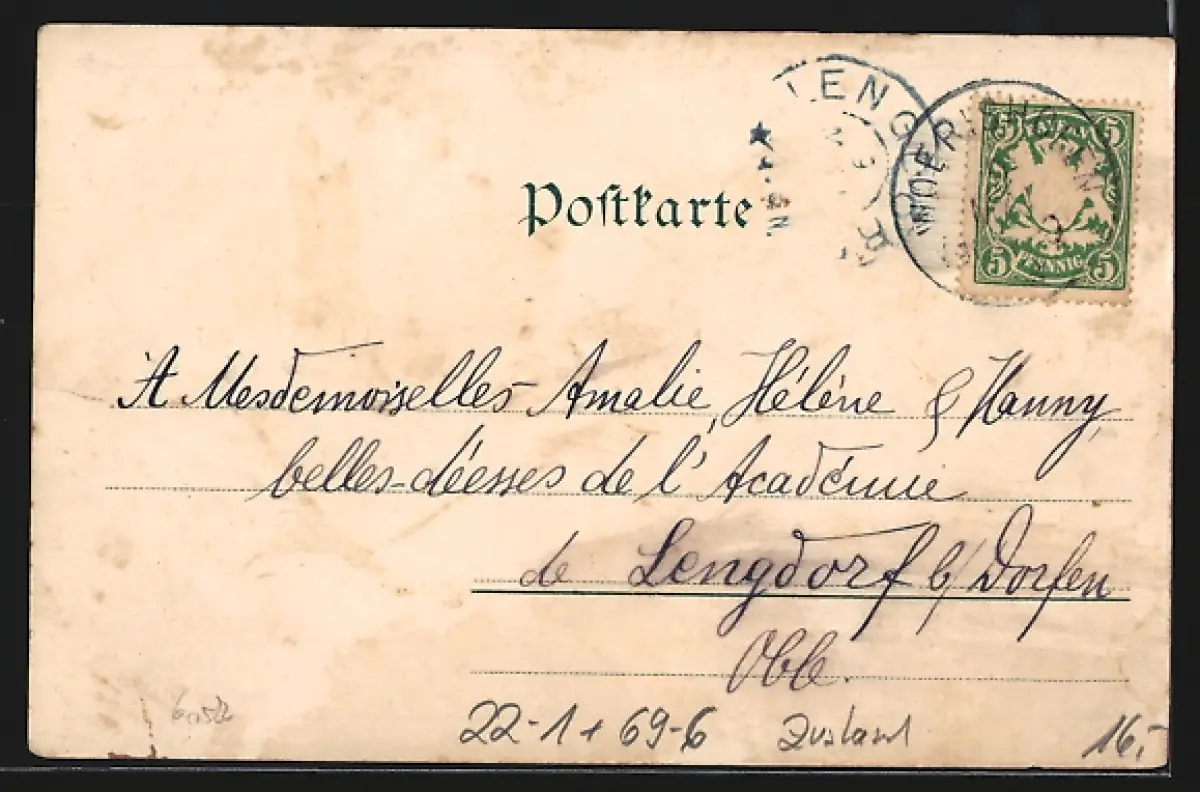 LENG
WÖRISHOFEN
5 5
5 PFENNIG 5
Postkarte
A Mesdemoiselles Amalie, Hélène & Hanny,
belles-déesses de l'Académie
de Lengdorf b/ Dorfen
Obb.
22-1+69-6 Zustand 16,-